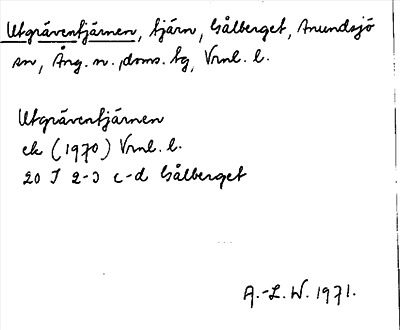 Utgräventjärnen, tjärn, Gålberget, Anundsjö
sn, Ång. n., doms. tg, Vrnl. l.
Utgräventjärnen
ek (1970) Vrnl. l.
20 J 2-3 c-d Gålberget
A.-L. W. 1971.